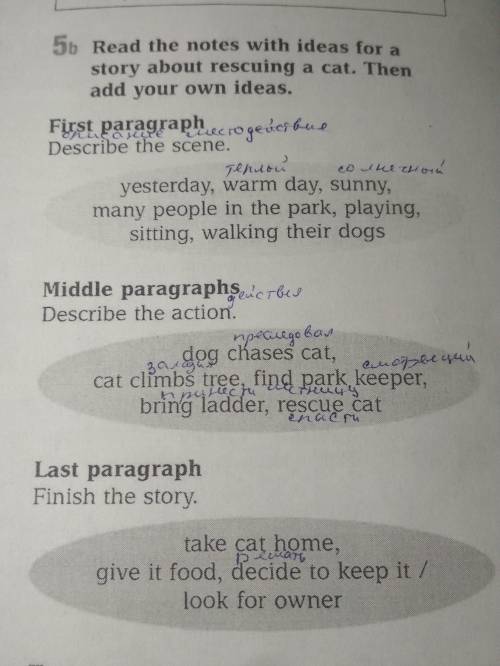 5b Read the notes with ideas for a
story about rescuing a cat. Then
add your own ideas.
First paragraph
описание место действия
Describe the scene.
тёплый солнечный
yesterday, warm day, sunny,
many people in the park, playing,
sitting, walking their dogs
Middle paragraphs
действия
Describe the action.
преследовал
dog chases cat,
залазил смотрящий
cat climbs tree, find park keeper,
принести лестницу
bring ladder, rescue cat
спасти
Last paragraph
Finish the story.
take cat home,
решать
give it food, decide to keep it /
look for owner